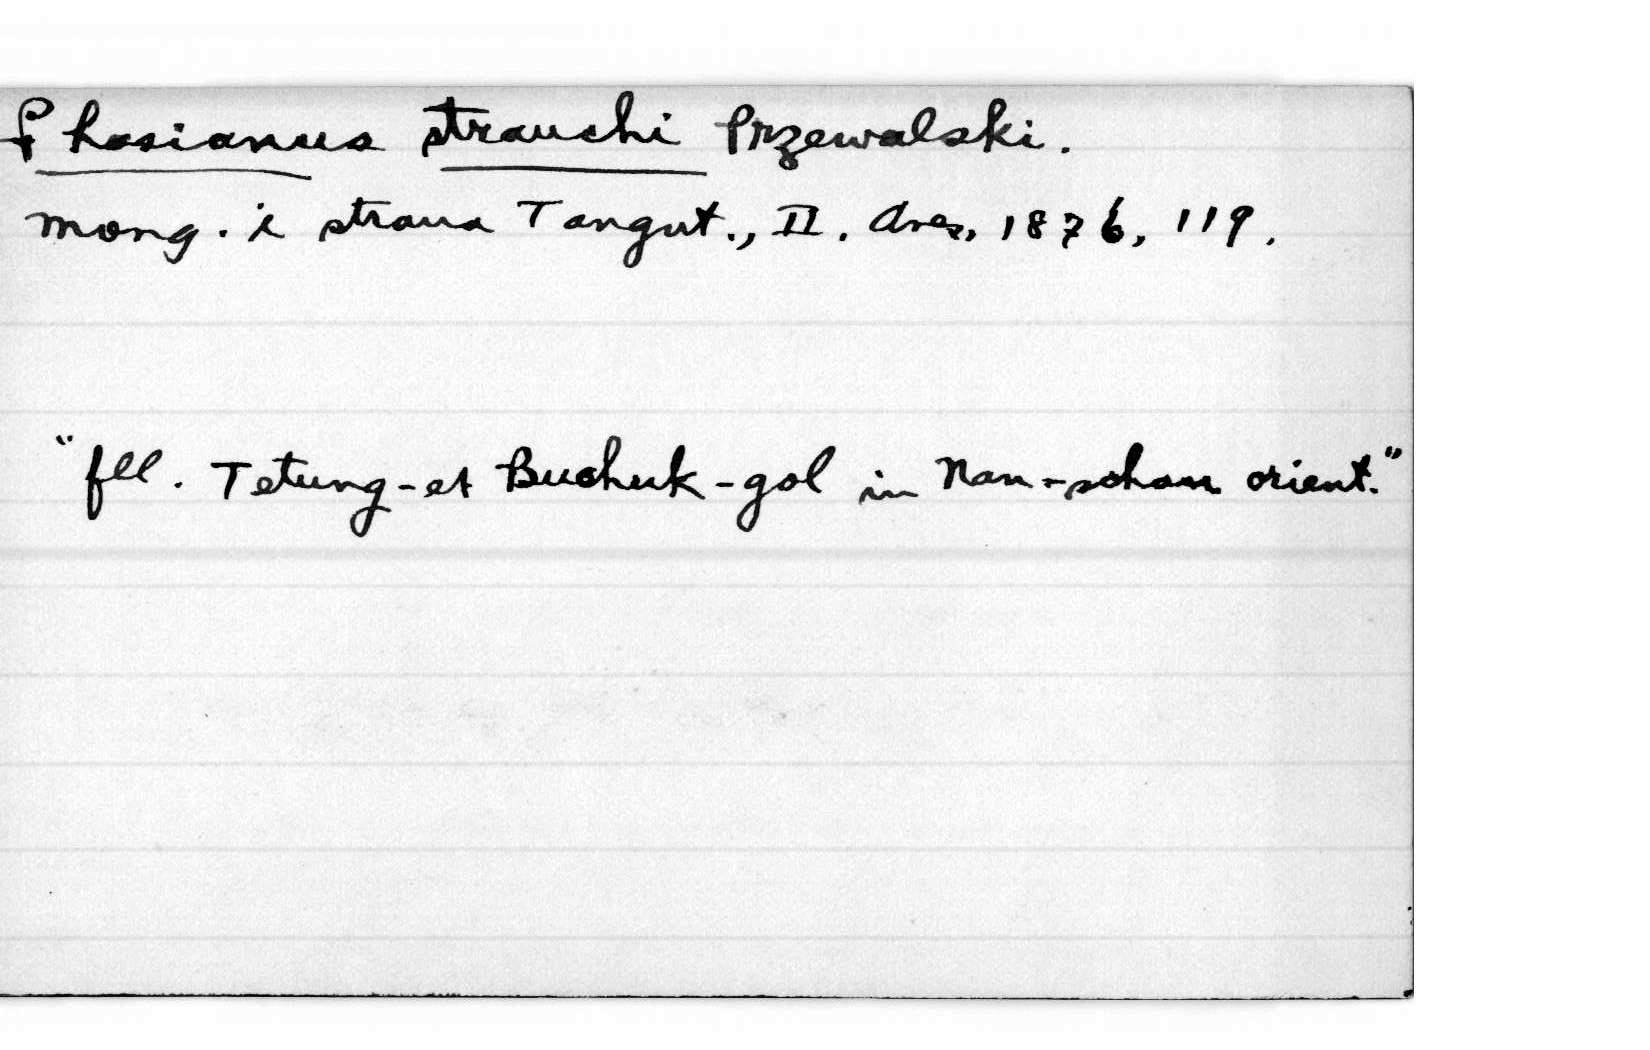 Phasianus strauchi Przewalski.
Mong. i strana Tangut., II. Aves, 1876, 119.
"fll. Tetung-et Buchuk-gol in Nan-schan orient."